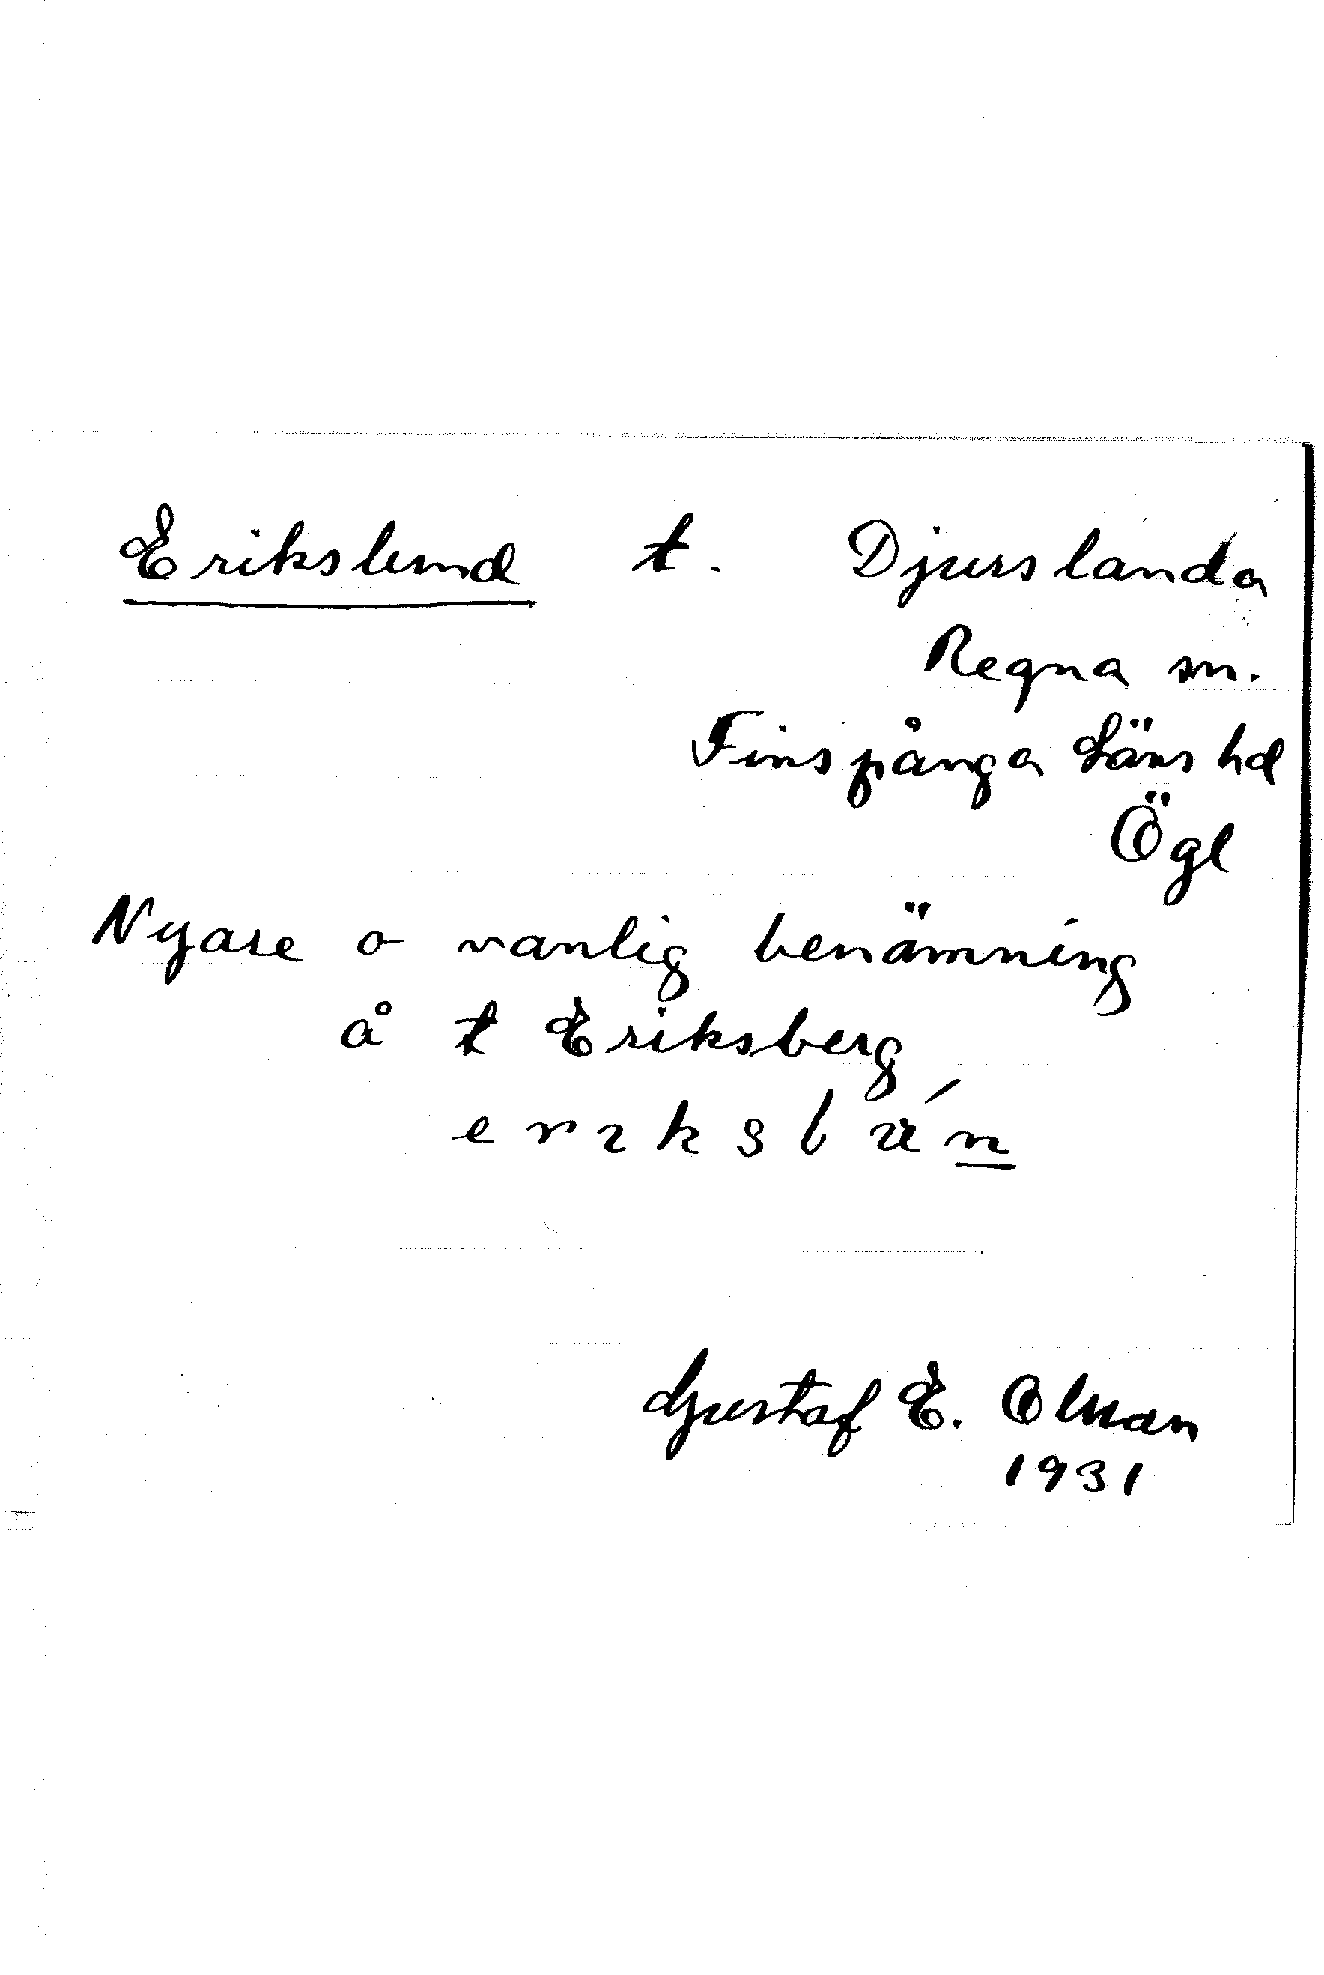 Erikslund t. Djurslanda
Regna sn.
Finspånga Läns hd
Ögl
Nyare o vanlig benämning
å t Eriksberg
Gustaf E. Olsson
1931